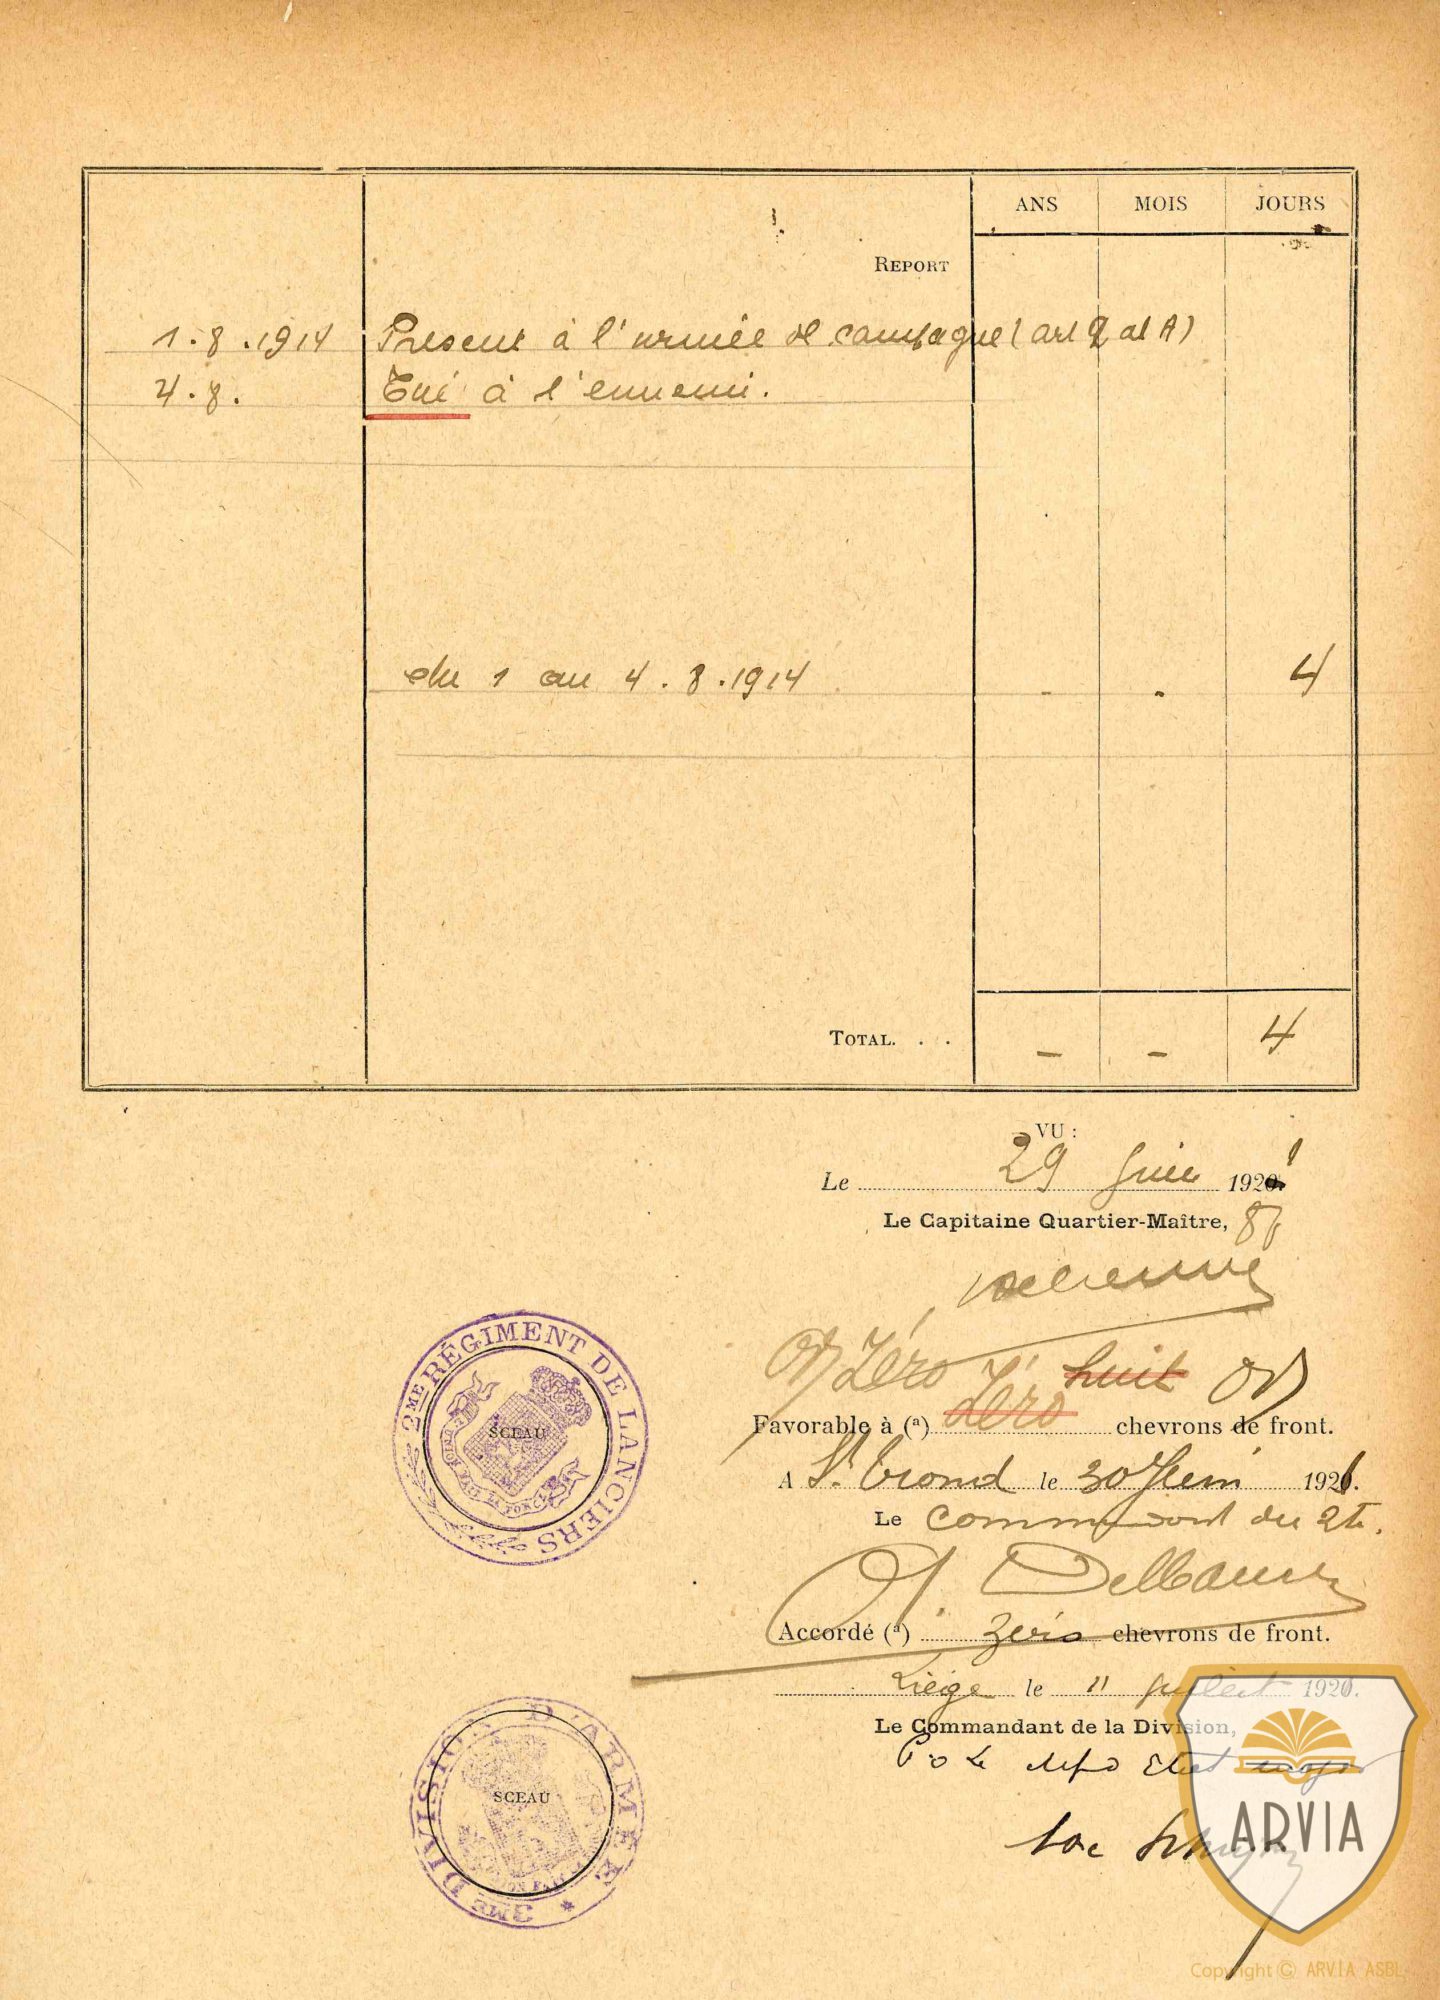 ANS MOIS JOURS
REPORT
1.8.1914 Présent à l'armée de campagne (art 2 al A)
4.8. Tué à l'ennemi.
du 1 au 4.8.1914 - . 4
TOTAL. . . - - 4
VU :
Le 29 Juin 1921
Le Capitaine Quartier-Maître,
Zéro huit
Favorable à (a) Zéro chevrons de front.
A St. Trond le 30 Juin 1921.
Le Commandant du 2L.
Accordé (a) zéro chevrons de front.
Liège le 11 juillet 1921.
Le Commandant de la Division,
P.O. Le chef d'Etat major
2ME RÉGIMENT DE LANCIERS
L'UNION FAIT LA FORCE
SCEAU
3ME DIVISION D'ARMÉE *
SCEAU
ARVIA
Copyright © ARVIA ASBL